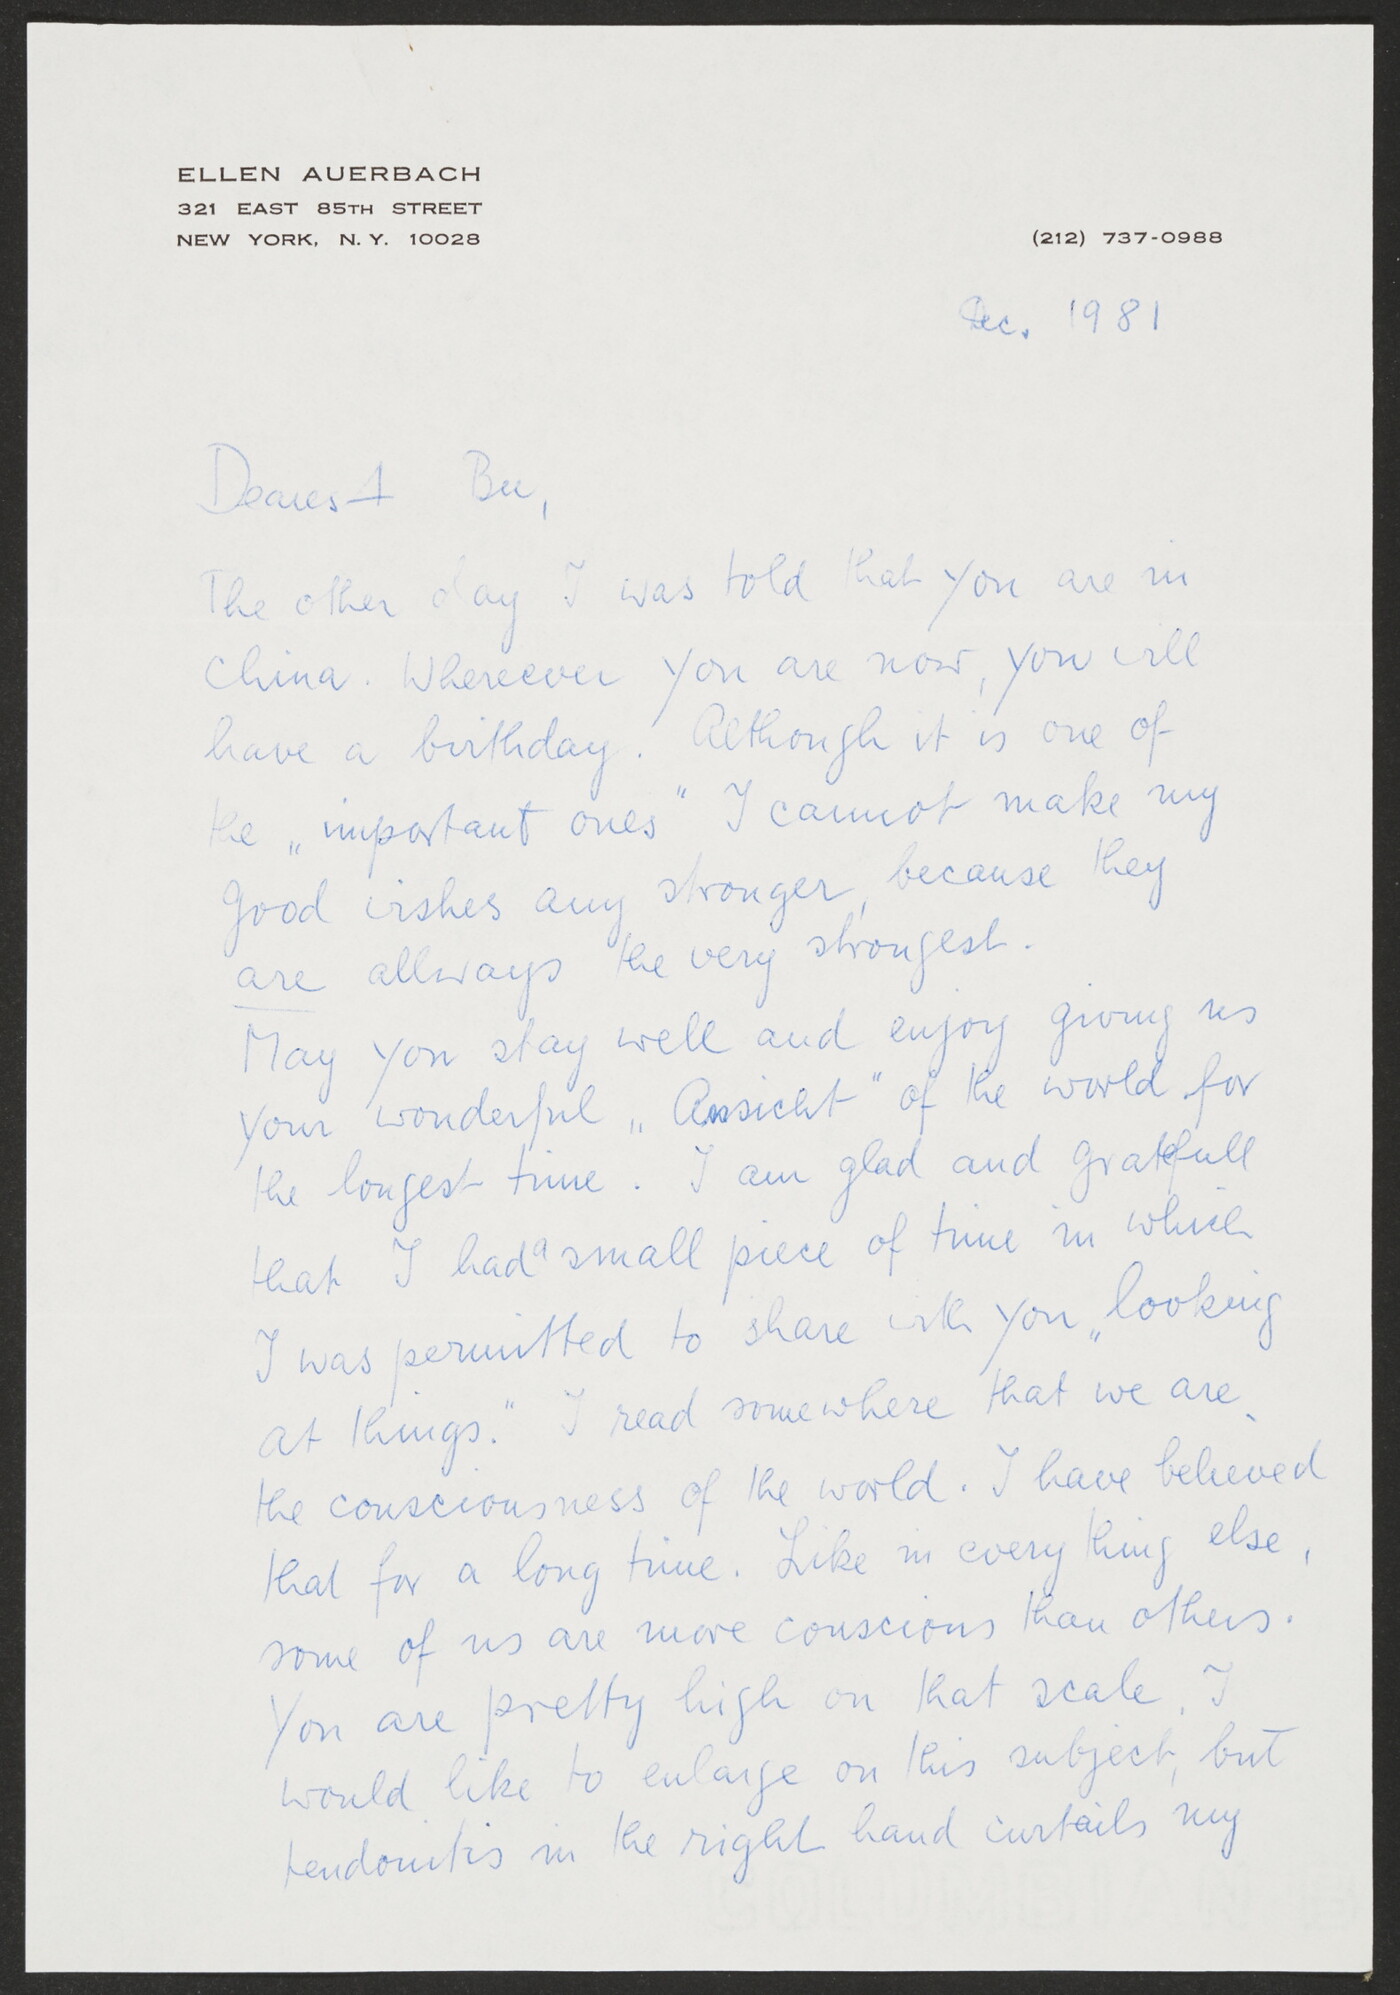 ELLEN AUERBACH
321 EAST 85TH STREET
NEW YORK, N.Y. 10028
(212) 737-0988
Dec. 1981
Dearest Bu,
The other day I was told that you are in
China. Whereever you are now, you will
have a birthday. Although it is one of
the „important ones" I cannot make my
good wishes any stronger, because they
are allways the very strongest.
May you stay well and enjoy giving us
your wonderful „Ansicht" of the world for
the longest time. I am glad and gratefull
that I had a small piece of time in which
I was permitted to share with you „looking
at things." I read somewhere that we are
the consciousness of the world. I have believed
that for a long time. Like in everything else,
some of us are more conscious than others.
You are pretty high on that scale. I
would like to enlarge on this subject, but
tendonitis in the right hand curtails my